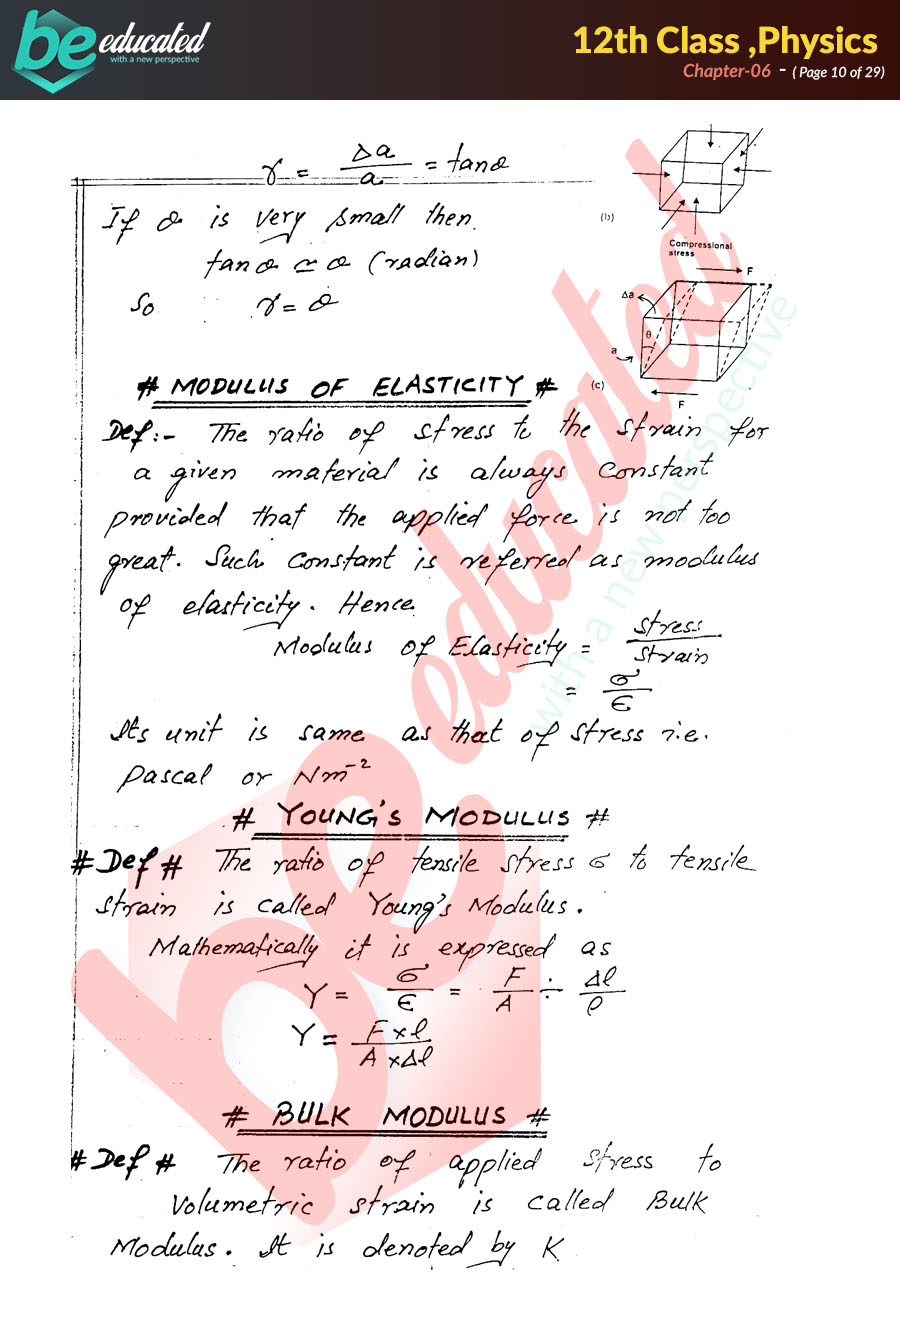 be educated
with a new perspective
12th Class ,Physics
Chapter-06 - ( Page 10 of 29)
γ = Δa/a = tanθ
If θ is very small then
tanθ ≃ θ (radian)
So γ = θ
(b)
Compressional
stress
F
Δa
θ
a
(c)
F
# MODULUS OF ELASTICITY #
Def:- The ratio of stress to the strain for
a given material is always constant
provided that the applied force is not too
great. Such constant is referred as modulus
of elasticity. Hence
Modulus of Elasticity = stress/strain
= σ/ϵ
Its unit is same as that of stress i.e.
pascal or Nm⁻²
# YOUNG'S MODULUS #
# Def # The ratio of tensile stress σ to tensile
strain is called Young's Modulus.
Mathematically it is expressed as
Y = σ/ϵ = F/A ÷ Δl/l
Y = F×l/A×Δl
# BULK MODULUS #
# Def # The ratio of applied stress to
Volumetric strain is called Bulk
Modulus. It is denoted by K
be educated
with a new perspective